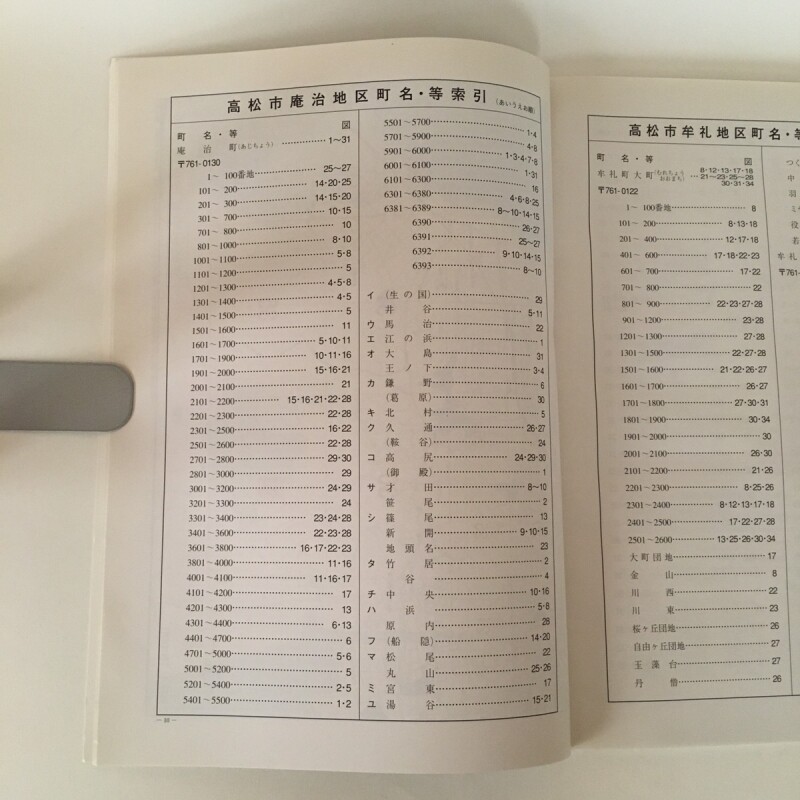 高松市庵治地区町名・等索引 (あいうえお順)
町名・等 図
庵治町(あじちょう)……1〜31
〒761-0130
1〜100番地……25〜27
101〜200……14・20・25
201〜300……14・15・20
301〜700……10・15
701〜800……10
801〜1000……8・10
1001〜1100……5・8
1101〜1200……5
1201〜1300……4・5・8
1301〜1400……4・5
1401〜1500……5
1501〜1600……11
1601〜1700……5・10・11
1701〜1900……10・11・16
1901〜2000……15・16・21
2001〜2100……21
2101〜2200……15・16・21・22・28
2201〜2300……22・28
2301〜2500……16・22
2501〜2600……22・28
2701〜2800……29・30
2801〜3000……29
3001〜3200……24・29
3201〜3300……24
3301〜3400……23・24・28
3401〜3600……22・23・28
3601〜3800……16・17・22・23
3801〜4000……11・16
4001〜4100……11・16・17
4101〜4200……17
4201〜4300……13
4301〜4400……6・13
4401〜4700……6
4701〜5000……5・6
5001〜5200……5
5201〜5400……2・5
5401〜5500……1・2
5501〜5700……1・4
5701〜5900……4・8
5901〜6000……1・3・4・7・8
6001〜6100……1・31
6101〜6300……16
6301〜6380……4・6・8・25
6381〜6389……8〜10・14・15
6390……26・27
6391……25〜27
6392……9・10・14・15
6393……8〜10
イ (生の国)……29
井谷……5・11
ウ 馬治……22
エ 江の浜……1
オ 大島……31
王ノ下……3・4
カ 鎌野……6
(葛原)……30
キ 北村……5
ク 久通……26・27
(鞍谷)……24
コ 高尻……24・29・30
(御殿)……1
サ 才田……8〜10
笹尾……2
シ 篠尾……13
新開……9・10・15
地頭名……23
タ 竹居……2
谷……4
チ 中央……10・16
ハ 浜……5・8
原内……28
フ (船隠)……14・20
マ 松尾……22
丸山……25・26
ミ 宮東……17
ユ 湯谷……15・21
高松市牟礼地区町名・等
町名・等 図
牟礼町大町(むれちょうおおまち)……8・12・13・17・18
21〜23・25〜28
30・31・34
〒761-0122
1〜100番地……8
101〜200……8・13・18
201〜400……12・17・18
401〜600……17・18・22・23
601〜700……17・22
701〜800……22
801〜900……22・23・27・28
901〜1200……23・28
1201〜1300……27・28
1301〜1500……22・27・28
1501〜1600……21・22・26・27
1601〜1700……26・27
1701〜1800……27・30・31
1801〜1900……30・34
1901〜2000……30
2001〜2100……26・30
2101〜2200……21・26
2201〜2300……8・25・26
2301〜2400……8・12・13・17・18
2401〜2500……17・22・27・28
2501〜2600……13・25・26・30・34
大町団地……17
金山……8
川西……22
川東……23
桜ヶ丘団地……26
自由ヶ丘団地……27
玉藻台……27
丹悟……26
つく
中
羽
ミサ
役
若
牟礼
〒761-